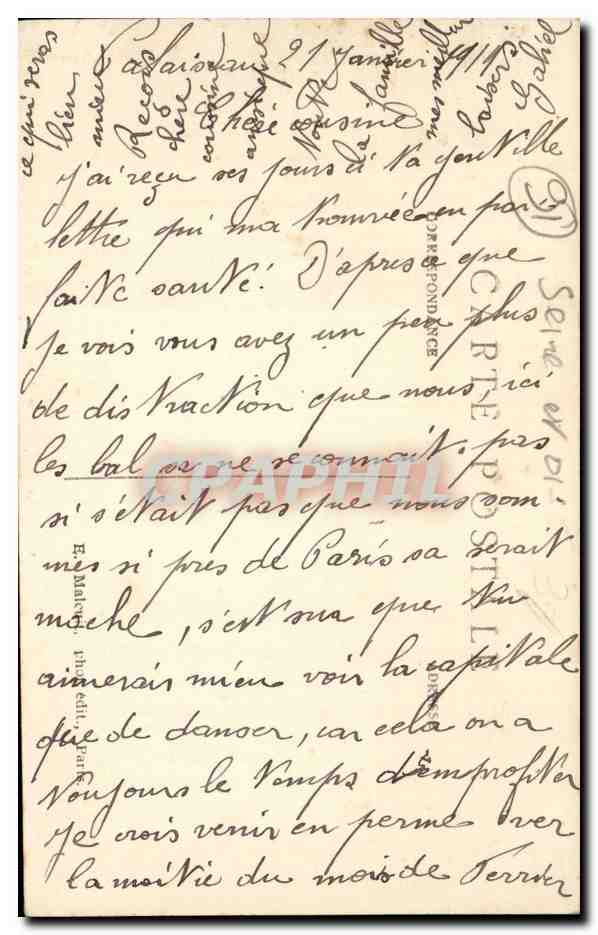 Palaiseau 21 Janvier 1911
Chère cousine
j'ai reçu ses jours ci ta gentille
lettre qui ma trouvée en par-
faite santé. D'après ce que
je vois vous avez un peu plus
de distraction que nous, ici
les bal on ne se connait pas
si s'était pas que nous som
mes si près de Paris sa serait
moche, s'est sur que tu
aimerais mieu voir la capitale
que de danser, car cela on a
toujours le temps d'en profiter
Je crois venir en perme ver
la moitié du mois de Fevrier
ce qui seras
bien
mieu
Recois
chère
cousine
ainsi que
toute
la famille
mes meilleur
baisers
CARTE POSTALE
CORRESPONDANCE
ADRESSE
E. Malcuit, phot. édit., Paris.
91
Seine et Oi-
CPAPHIL